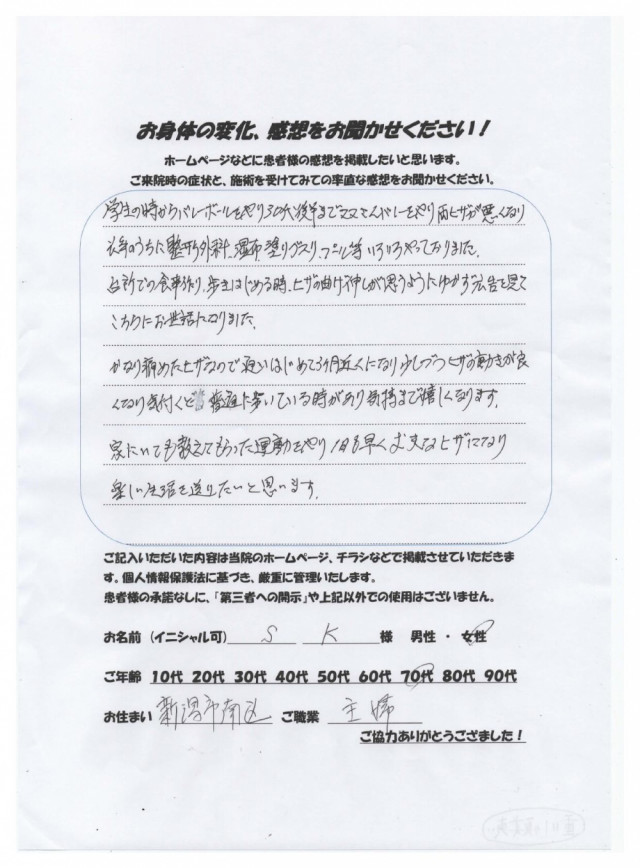 お身体の変化、感想をお聞かせください！
ホームページなどに患者様の感想を掲載したいと思います。
ご来院時の症状と、施術を受けてみての率直な感想をお聞かせください。
学生の時からバレーボールをやり30代後半までママさんバレーをやり両ヒザが悪くなり
長年のうちに整形外科、湿布塗りグスリ、プール等いろいろやっておりました。
台所での食事作り、歩きはじめる時、ヒザの曲げ伸しが思うようにゆかず広告を見て
こちらにお世話になりました。
かなり痛めたヒザなので通いはじめて3ヶ月近くになり少しづつヒザの動きが良
くなり気付くと普通に歩いている時があり気持まで嬉しくなります。
家にいても教えてもらった運動をやり1日も早く丈夫なヒザになり
楽しい生活を送りたいと思います。
ご記入いただいた内容は当院のホームページ、チラシなどで掲載させていただきま
す。個人情報保護法に基づき、厳重に管理いたします。
患者様の承諾なしに、「第三者への開示」や上記以外での使用はございません。
お名前（イニシャル可） S K 様 男性 ・ 女性
ご年齢 10代 20代 30代 40代 50代 60代 70代 80代 90代
お住まい 新潟市南区 ご職業 主婦
ご協力ありがとうございました！